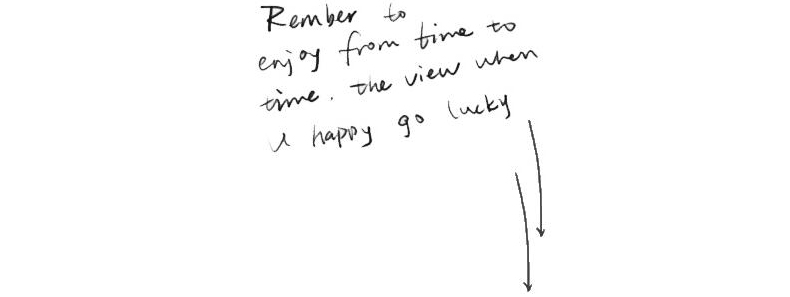 Rember to
enjoy from time to
time. the view when
u happy go lucky